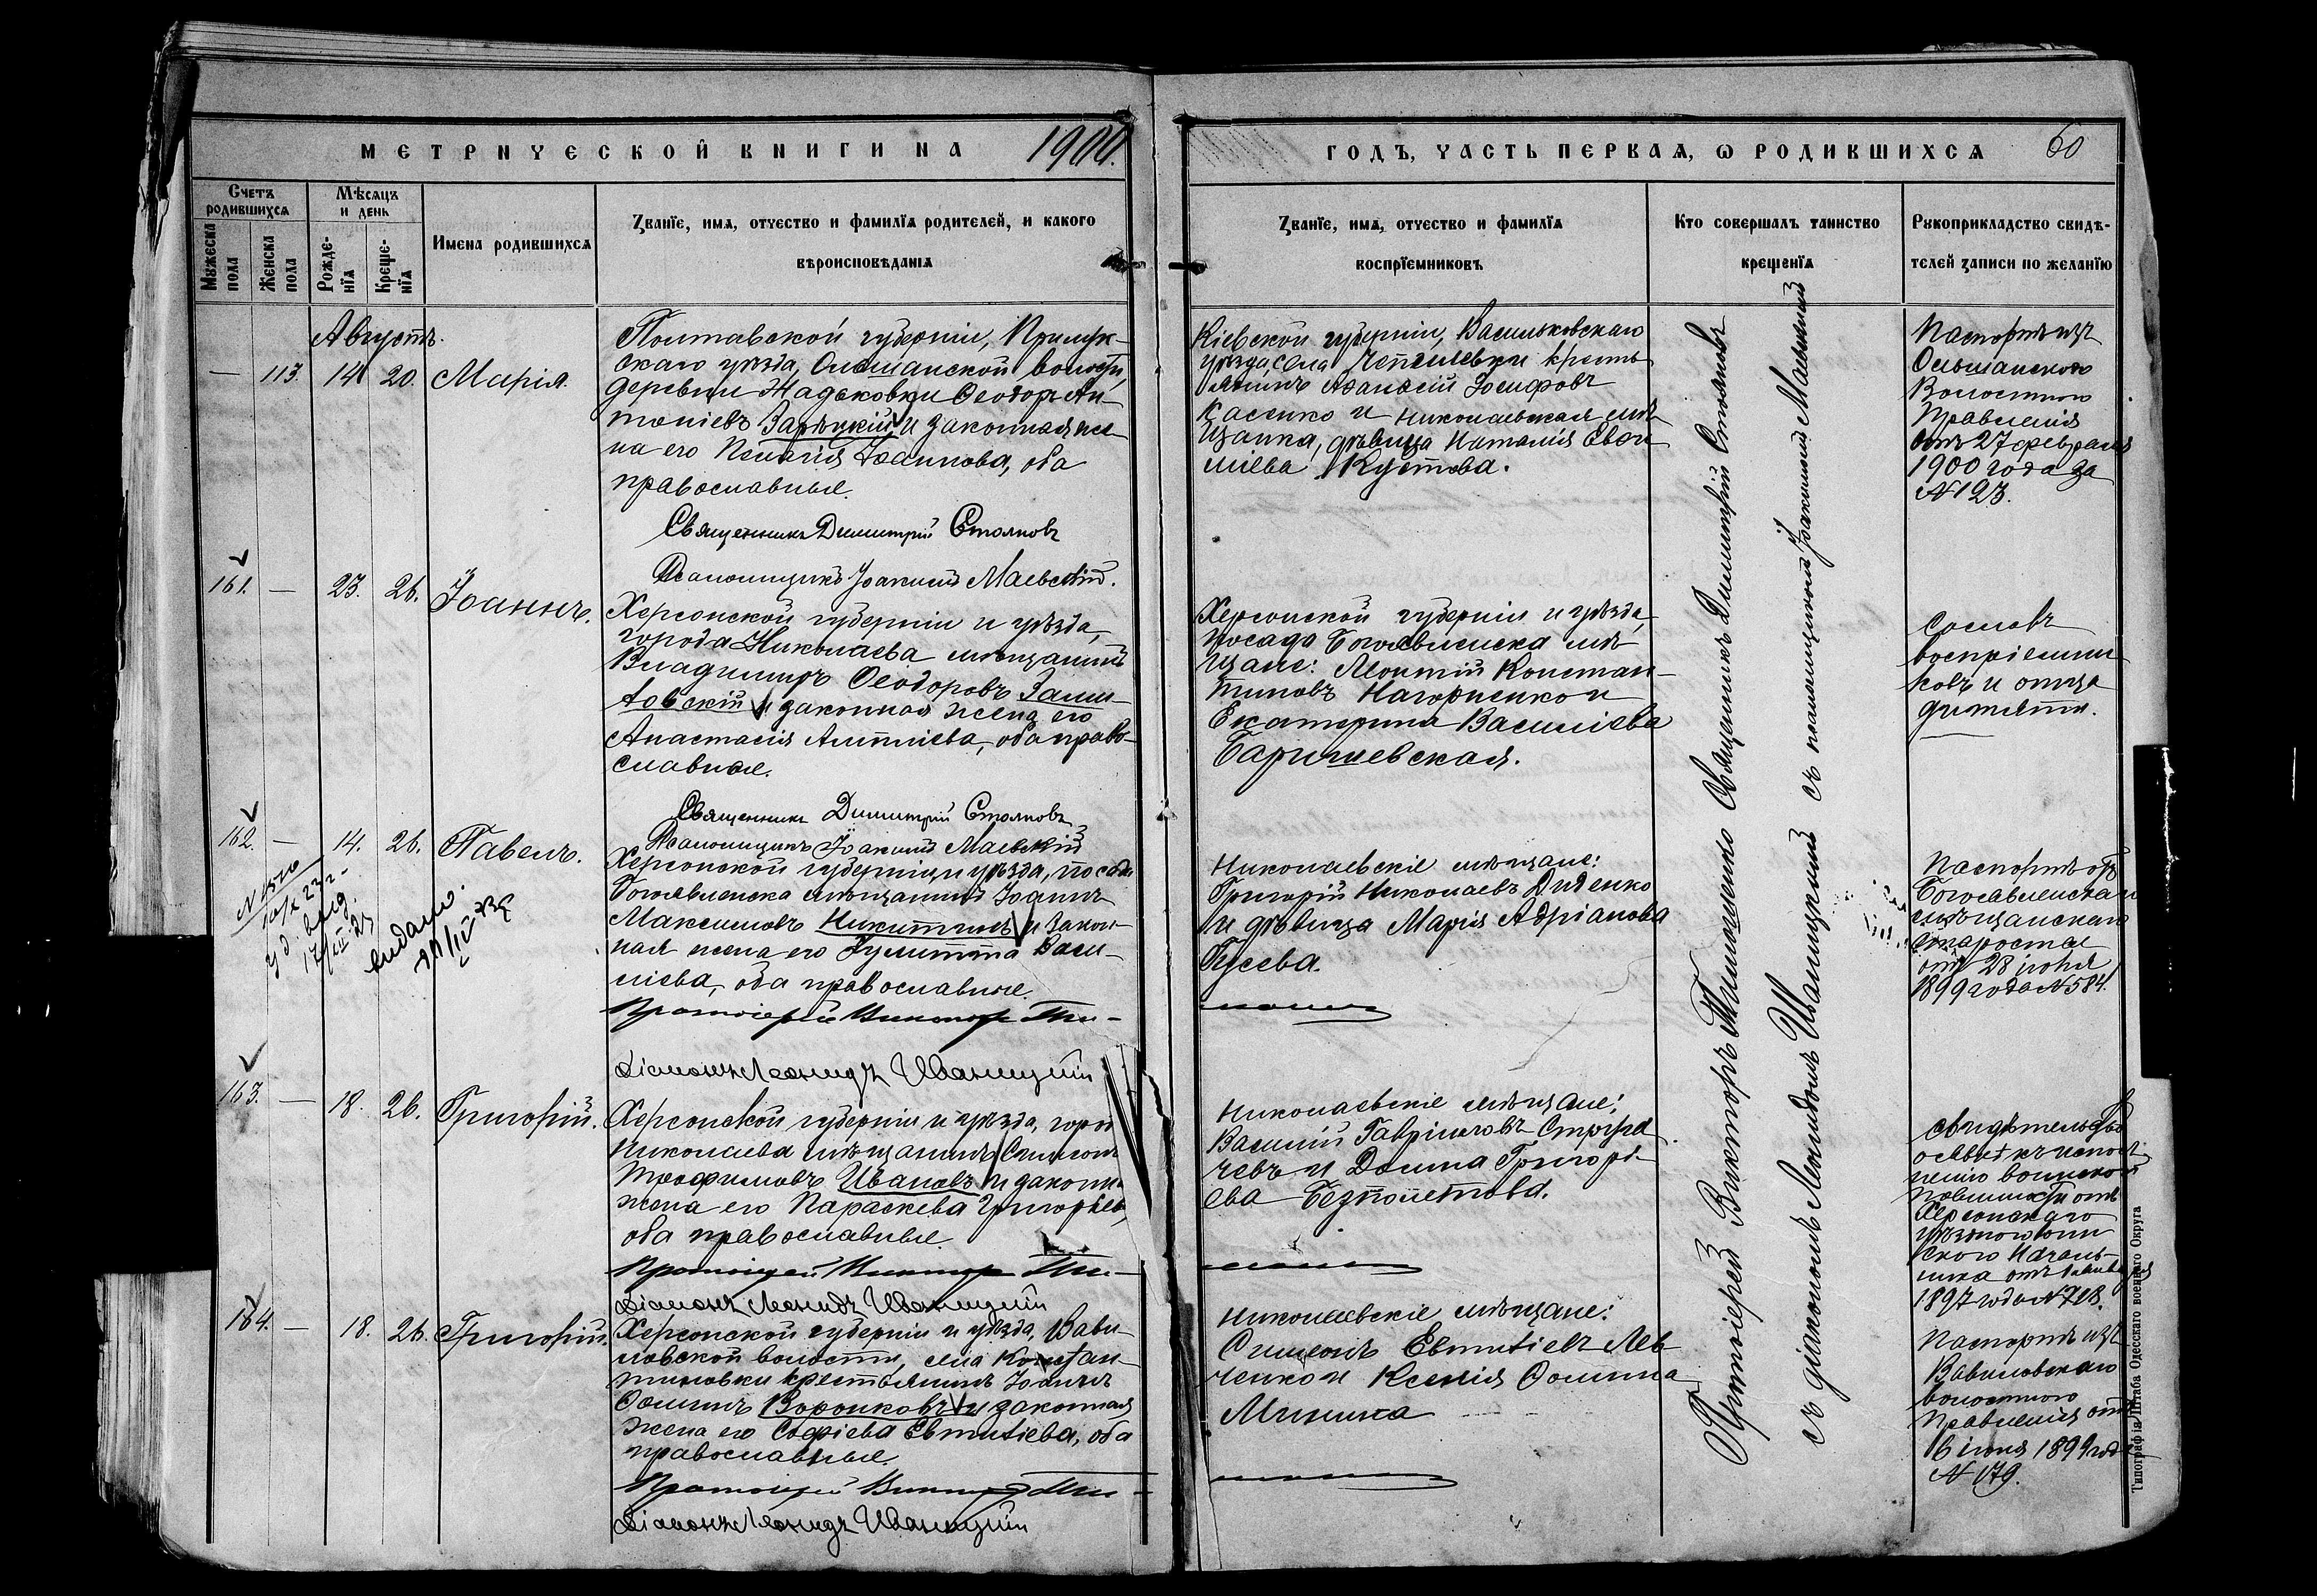 МЕТРИЧЕСКОЙ КНИГИ НА 1900.
ГОДЪ, ЧАСТЬ ПЕРВАЯ, Ѡ РОДИВШИХСЯ 60
Счетъ родившихся
Мѣсяцъ и день
Мужеска пола
Женска пола
Рожде-
нія
Креще-
нія
Имена родившихся
Званїе, имя, отчество и фамилїя родителей, и какого
вѣроисповѣданія
Званїе, имя, отчество и фамилїя
воспрїемниковъ
Кто совершалъ таинство
крещенїя
Рукоприкладство свидѣ-
телей записи по желанїю
Августъ.
— 113. 14 20. Марія.
Полтавской губерніи, Прилук-
скаго уѣзда, Ольшанской волости,
деревни Жадьковки Ѳеодоръ Ан-
тоніевъ Зарѣцкій и законная же-
на его Пелагія Іоаннова, оба
православные.
Священникъ Димитрій Стояновъ
Псаломщикъ Іоакимъ Маевскій.
Кіевской губерніи, Васильковскаго
уѣзда, села крестья-
янинъ Аѳанасій Іосифовъ
Касенко и Николаевская мѣ-
щанка, дѣвица Наталія Евѳи-
міева Кустова.
Паспортъ изъ
Ольшанскаго
Волостного
Правленія
отъ 27 февраля
1900 года за
№ 123.
161. — 23. 26. Іоаннъ.
Херсонской губерніи и уѣзда,
города Николаева мѣщанинъ
Владимиръ Ѳеодоровъ
и законная жена его
Анастасія, оба право-
славные.
Священникъ Димитрій Стояновъ
Псаломщикъ Іоакимъ Маевскій
Херсонской губерніи и уѣзда,
посада Богоявленска мѣ-
щане: Леонтій Констан-
тиновъ Нагорненко и
Екатерина Василіева
Баришевская.
Словъ
воспріемни-
ковъ и отца
дитяти.
162. — 14. 26. Павелъ.
Херсонской губерніи и уѣзда, посада
Богоявленска мѣщанинъ Іоаннъ
Максимовъ Никитинъ и закон-
ная жена его Іулитта Васи-
ліева, оба православные.
Протоіерей Викторъ Ти-
Діаконъ Леонидъ Иваницкій
видано.
Николаевскіе мѣщане:
Григорій Николаевъ Диденко
и дѣвица Марія Адріанова
Гусева.
Паспортъ отъ
Богоявленскаго
мѣщанскаго
старосты
отъ 28 іюня
1899 года № 584.
163. — 18. 26. Григорій.
Херсонской губерніи и уѣзда, города
Николаева мѣщанинъ Симеонъ
Трофимовъ Ивановъ и законная
жена его Параскева Григорьева,
оба православные.
Протоіерей Викторъ Ти-
Діаконъ Леонидъ Иваницкій
Николаевскіе мѣщане:
Василій Гавріиловъ
и Домна Григорі-
ева Безполетова.
Свидѣтельство
о явкѣ къ испол-
ненію воинской
повинности отъ
Херсонскаго
уѣзднаго воин-
скаго Началь-
ника отъ 1 января
1897 года № 728.
164. — 18. 26. Григорій.
Херсонской губерніи и уѣзда, Вави-
ловской волости, села Констан-
тиновки крестьянинъ Іоаннъ
Ѳоминъ Воронковъ и законная
жена его Софіева Евтихіева, оба
православные.
Протоіерей Викторъ Ти-
Діаконъ Леонидъ Иваницкій
Николаевскіе мѣщане:
Симеонъ Евтихіевъ Лев-
ченко и Ксенія Ѳомина
Минина
Паспортъ изъ
Вавиловскаго
волостного
Правленія отъ
16 іюня 1899 года
№ 179.
Священникъ Димитрій Стояновъ
съ псаломщикомъ Іоакимомъ Маевскимъ
Протоіерей Викторъ Тимошенко
съ діакономъ Леонидомъ Иваницкимъ
Типографія Штаба Одесскаго военнаго Округа